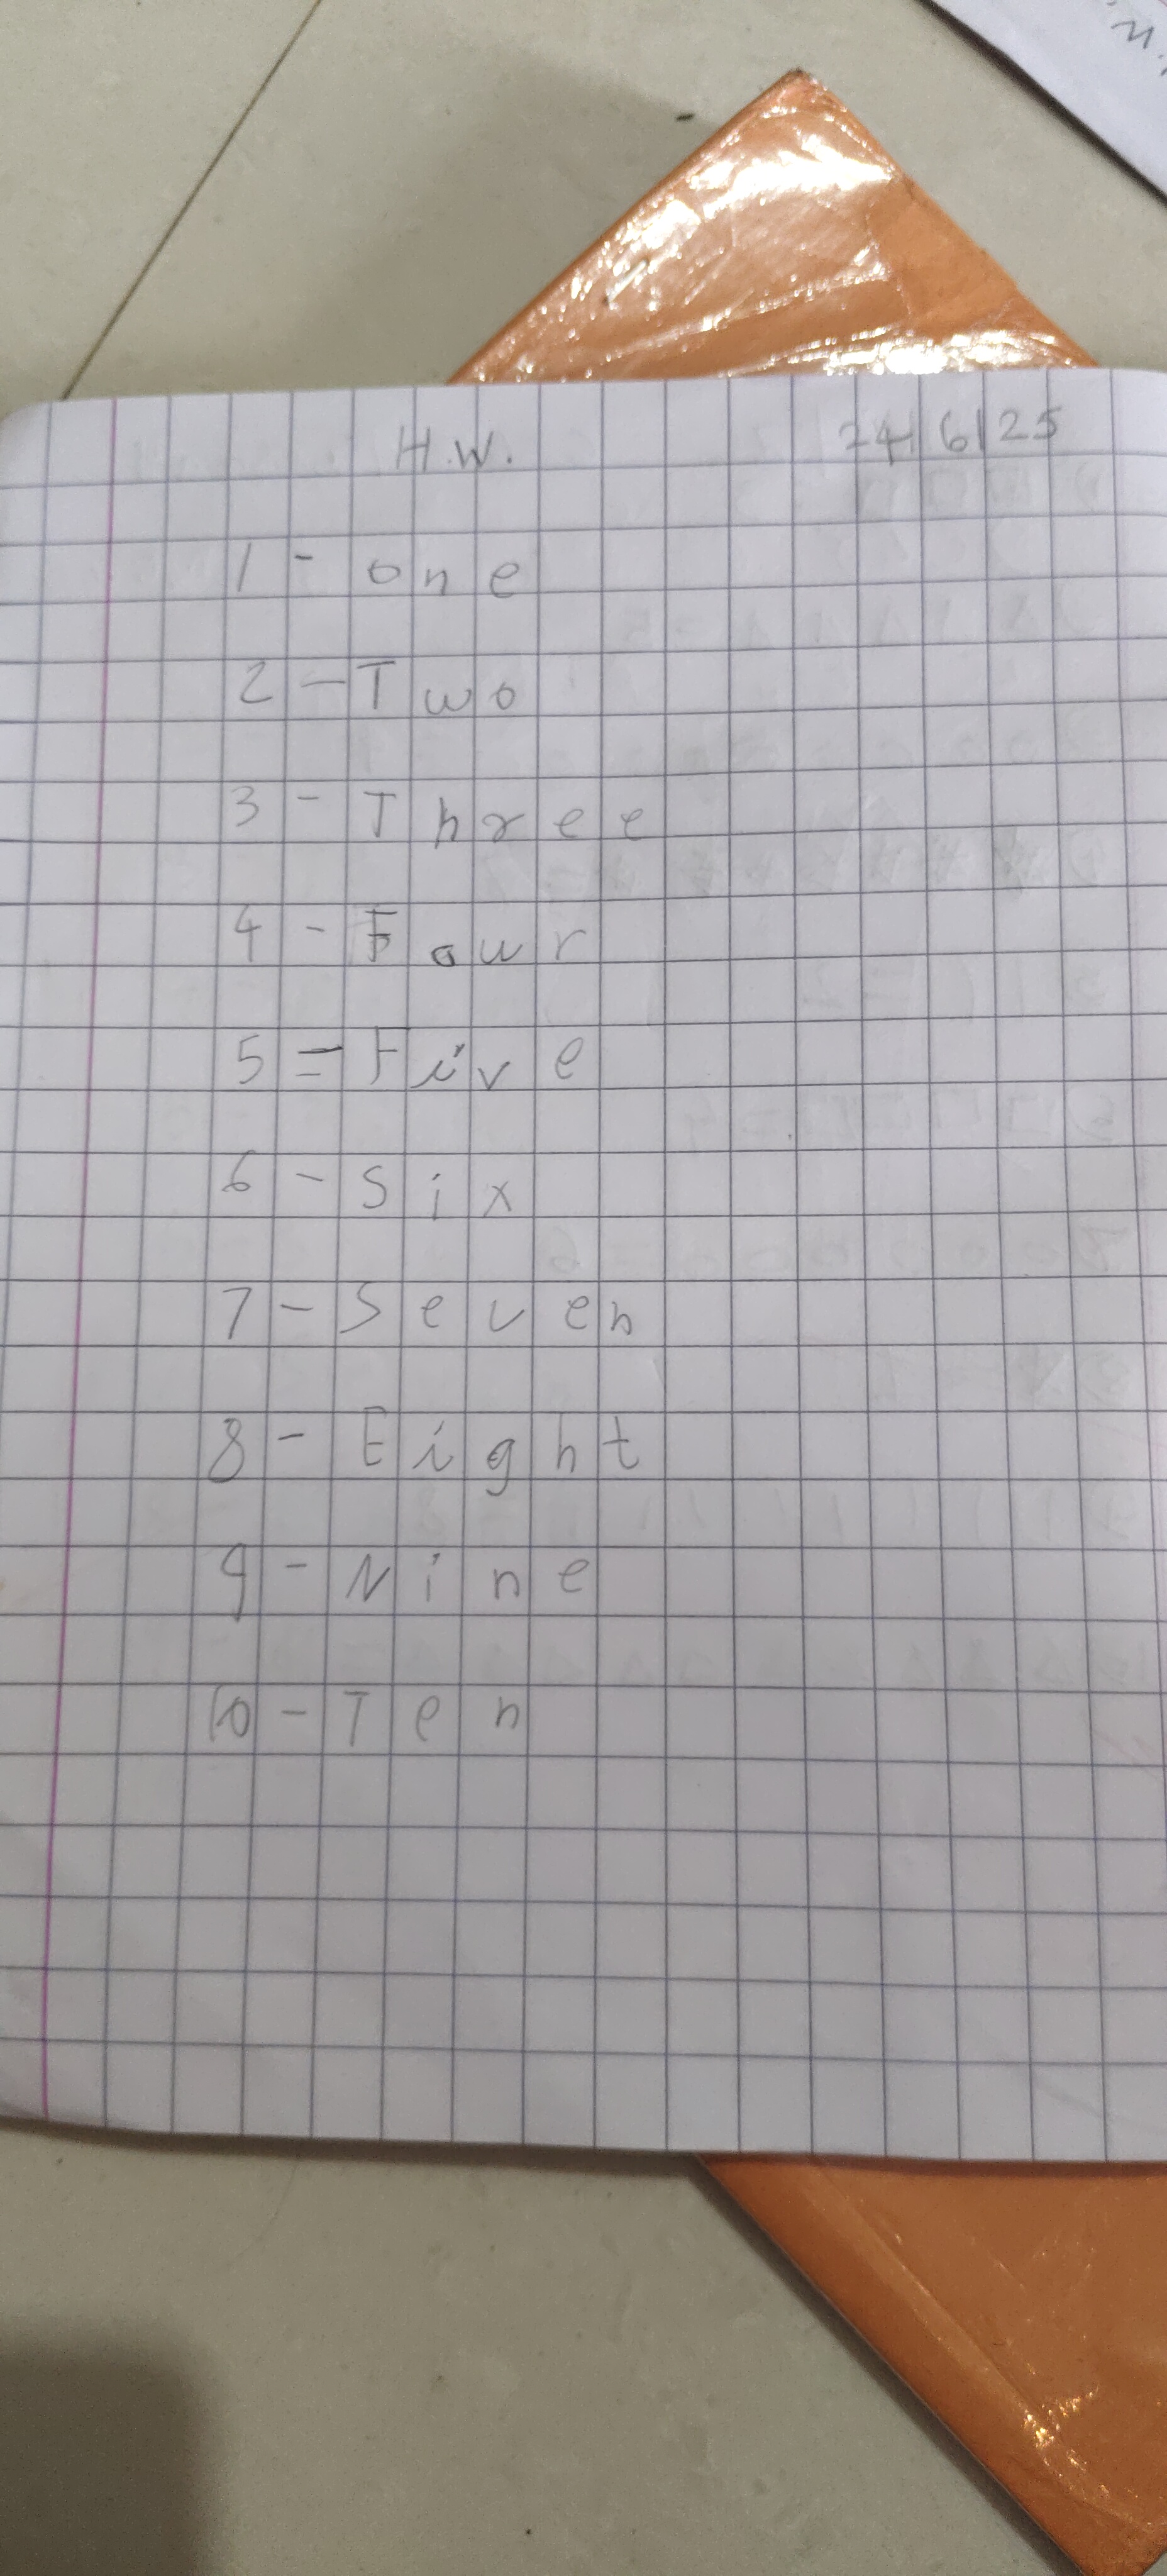 H.W. 24/6/25
1 - one
2 - Two
3 - Three
4 - Four
5 = Five
6 - Six
7 - Seven
8 - Eight
9 - Nine
10 - Ten